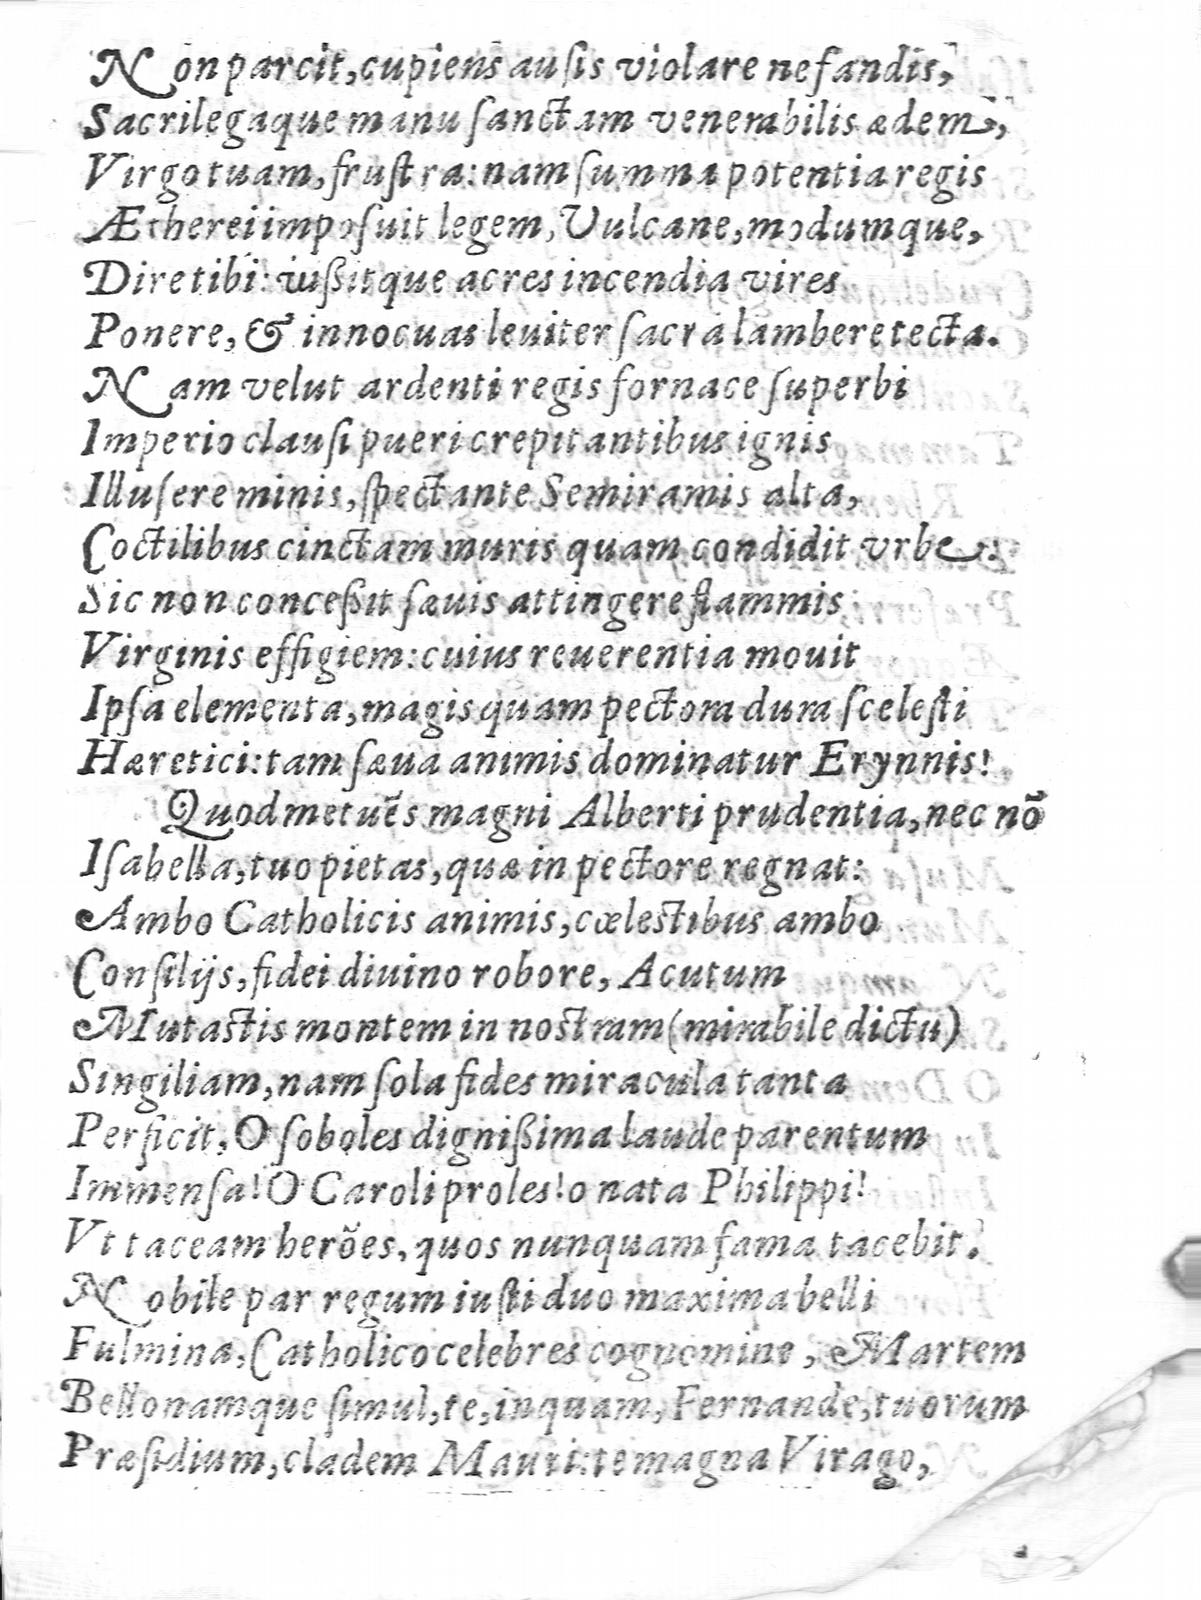 Non parcit, cupiens ausis violare nefandis,
Sacrilegaque manu ſanctam venerabilis ædem,
Virgo tuam, fruſtra: nam ſumma potentia regis
Ætherei impoſuit legem, Vulcane, modumque,
Dire tibi: iußitque acres incendia vires
Ponere, & innocuas leuiter ſacra lambere tecta.
Nam velut ardenti regis fornace ſuperbi
Imperio clauſi pueri crepitantibus ignis
Illuſere minis, ſpectante Semiramis alta,
Coctilibus cinctam muris quam condidit vrbē.
Sic non conceßit ſæuis attingere flammis
Virginis effigiem: cuius reuerentia mouit
Ipſa elementa, magis quam pectora dura ſceleſti
Hæretici: tam ſæua animis dominatur Erynnis!
Quod metuẽs magni Alberti prudentia, nec nõ
Iſabella, tuo pietas, quæ in pectore regnat:
Ambo Catholicis animis, cœlestibus ambo
Conſilijs, fidei diuino robore, Acutum
Mutastis montem in nostram (mirabile dictu)
Singiliam, nam ſola fides miracula tanta
Perficit, O ſoboles dignißima laude parentum
Immenſa! O Caroli proles! o nata Philippi!
Vt taceam herões, quos nunquam fama tacebit.
Nobile par regum iuſti duo maxima belli
Fulmina, Catholico celebres cognomine, Martem
Bellonamque ſimul, te, inquam, Fernande, tuorum
Præſidium, cladem Mauri: te magna Virago,